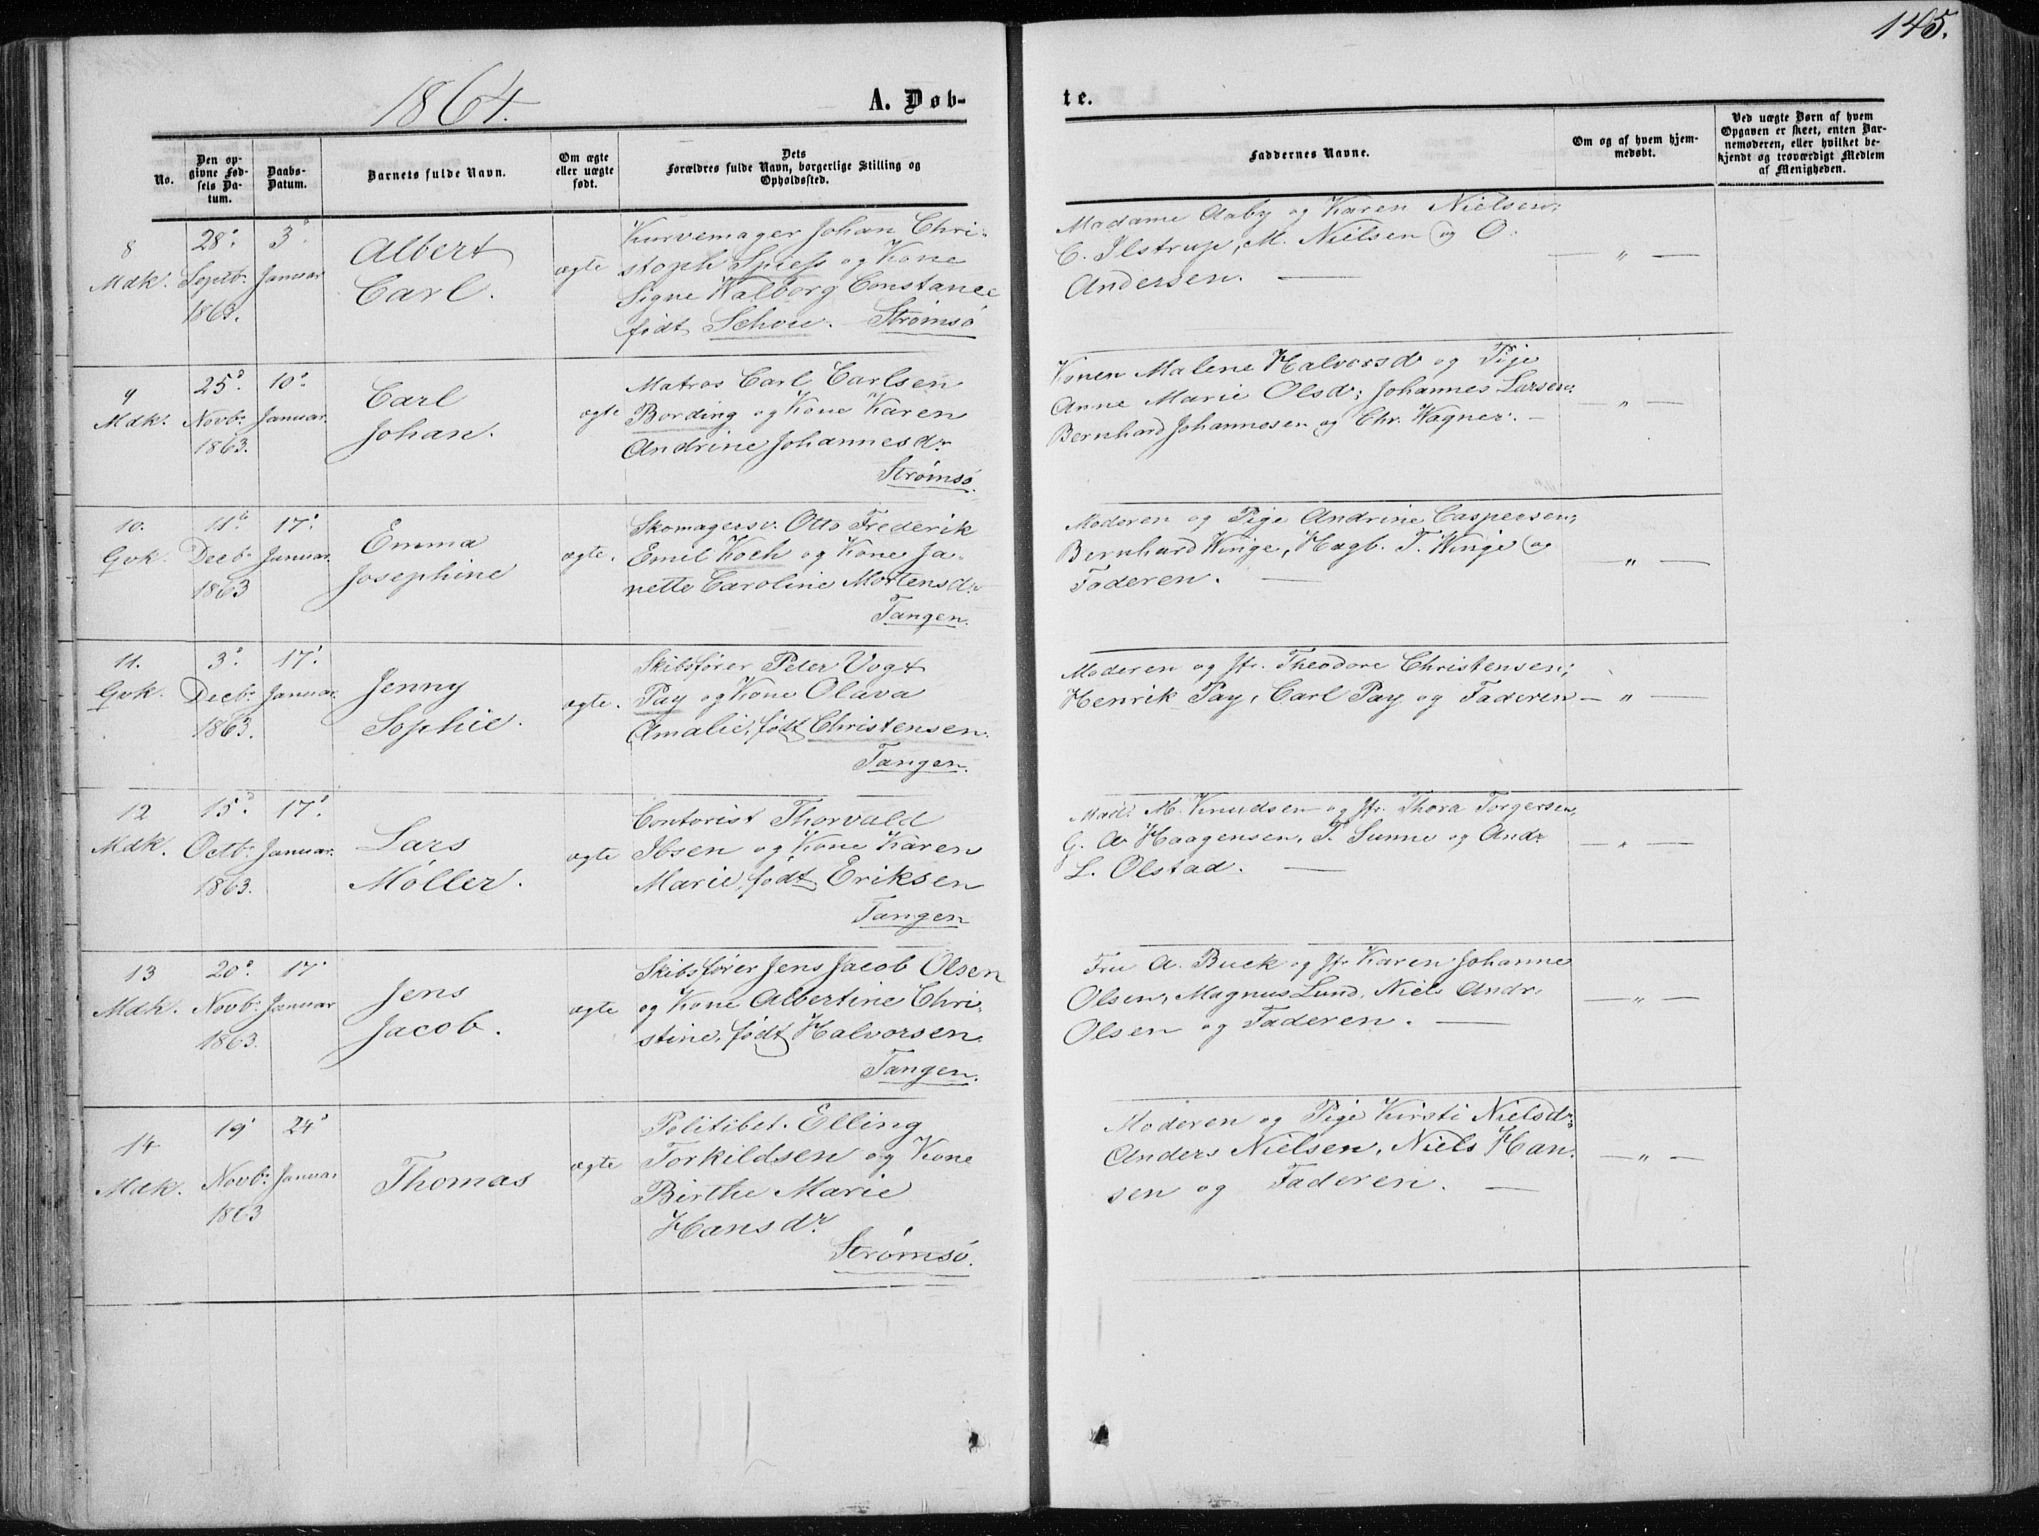 145.
1864.
A. Døb-
te.
No.
Den op-
givne Fød-
sels Da-
tum.
Daabs-
Datum.
Barnets fulde Navn.
Om ægte
eller uægte
født.
Dets
Forældres fulde Navn, borgerlige Stilling og
Opholdssted.
Faddernes Navne.
Om og af hvem hjem-
medøbt.
Ved uægte Børn af hvem
Opgaven er skeet, enten Bar-
nemoderen, eller hvilket be-
kjendt og troværdigt Medlem
af Menigheden.
8
Mdk.
28de
Septbr
1863.
3de
Januar
Albert
Carl.
ægte
Kurvemager Johan Chri-
stoph Spiess og Kone
Signe Walborg Constance
født Schou. Strømsø
Madame Aaby og Karen Nielsen;
C. Ilstrup, M. Nielsen og O.
Andersen. —
— " —
9
Mdk.
25de
Novbr
1863.
10de
Januar.
Carl
Johan.
ægte
Matros Carl Carlsen
Bording og Kone Karen
Andrine Johannesdr
Strømsø.
Konen Malene Halvorsd og Pige
Anne Marie Olsd; Johannes Larsen;
Bernhard Johannesen og Chr. Wagner. —
— " —
10.
Qvk.
11te
Decbr
1863
17.
Januar.
Emma
Josephine
ægte.
Skomagersv. Otto Frederik
Emil Koch og Kone Ja-
nette Caroline Mortensdr
Tangen.
Moderen og Pige Andrine Caspersen;
Bernhard Winge, Hagb. T. Winge og
Faderen. —
— " —
11.
Qvk.
3de
Decbr
1863.
17.
Januar.
Jenny
Sophie.
ægte.
Skibsfører Peter Vogt
Pay og Kone Olava
Amalie, født Christensen.
Tangen.
Moderen og Jfr. Theodore Christensen;
Henrik Pay, Carl Pay og Faderen
— " —
12
Mdk.
15de
Octbr
1863.
17.
Januar.
Lars
Møller.
ægte
Contorist Thorvald
Ibsen og Kone Karen
Marie, født Eriksen
Tangen
Mad. M. Knudsen og Jfr. Thora Torgersen,
G. A Haagensen, T. Sunne og Andr
L. Olstad. —
— " —
13
Mdk.
20de
Novbr
1863.
17.
Januar
Jens
Jacob.
ægte
Skibsfører Jens Jacob Olsen
og Kone Albertine Chri-
stine, født Halvorsen.
Tangen.
Fru A. Buck og Jfr Karen Johanne
Olsen, Magnus Lund, Niels Andr.
Olsen og Faderen. —
— " —
14
Mdk.
19.
Novbr
1863
24de
Januar
Thomas
ægte
Politibet. Elling
Torkildsen og Kone
Birthe Marie
Hansdr
Strømsø.
Moderen og Pige Kirsti Nielsdr
Anders Nielsen, Niels Han-
sen og Faderen. —
— " —